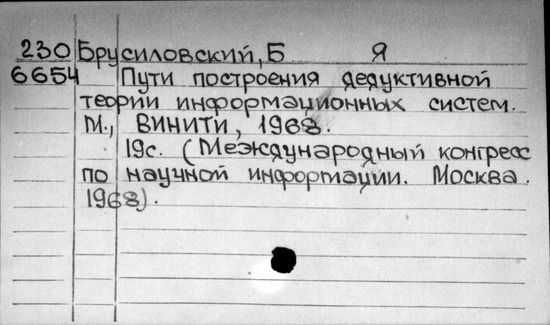 230 Брусиловский, Б Я
6654 Пути построения дедуктивной
теории информационных систем.
М., ВИНИТИ, 1968.
19с. (Международный конгресс
по научной информации. Москва.
1968).